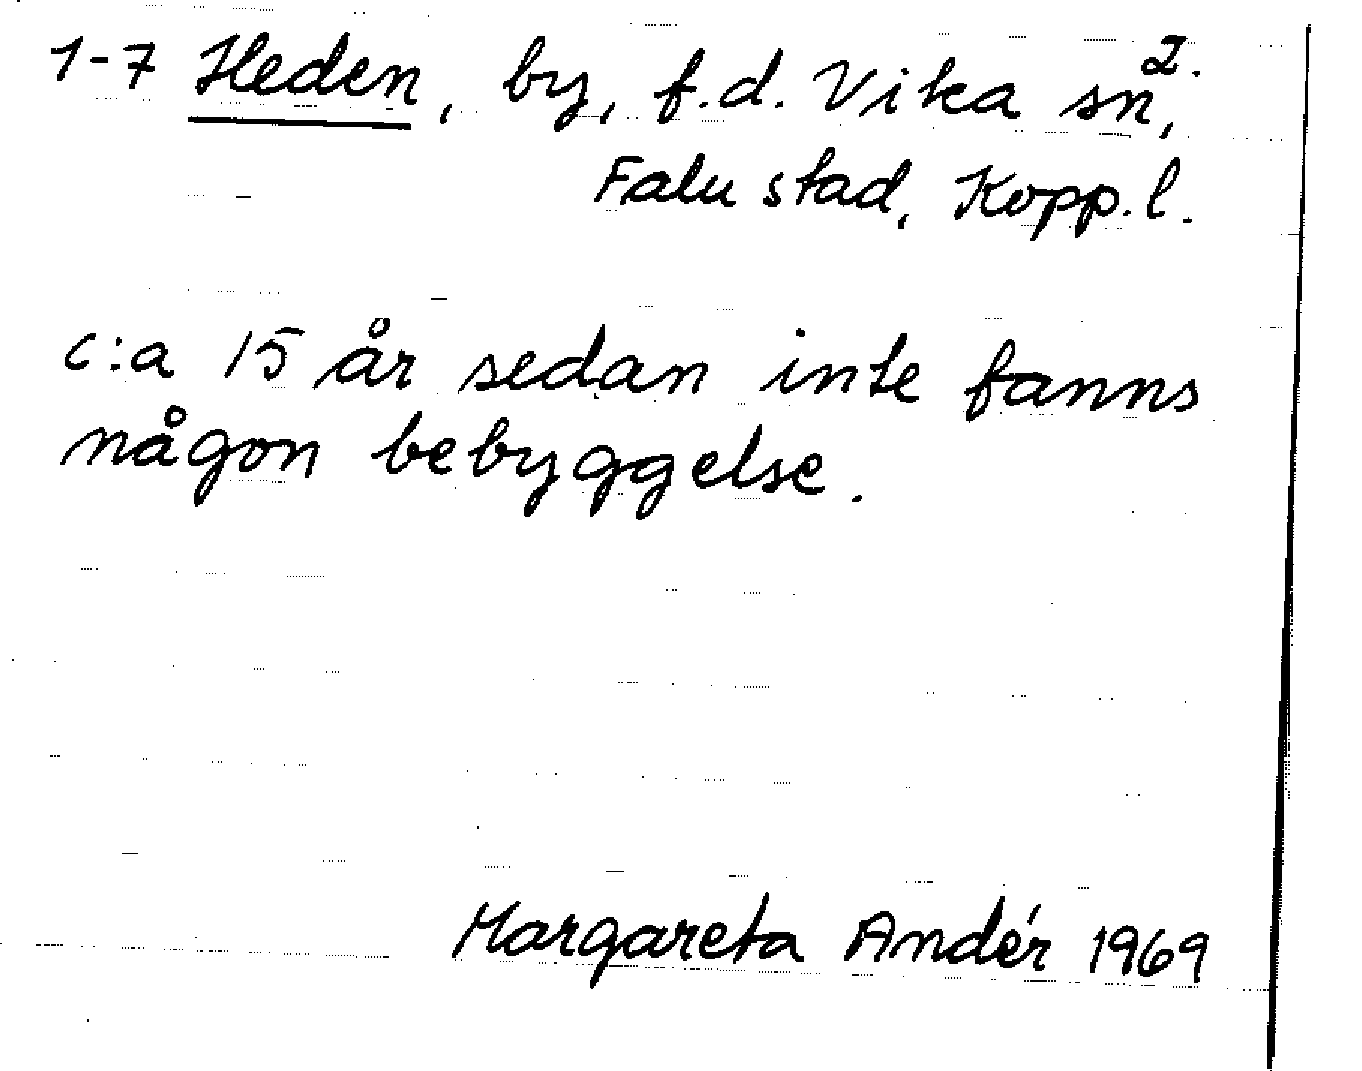 2.
1-7 Heden, by, f.d. Vika sn,
Falu stad, Kopp.l.
c:a 15 år sedan inte fanns
någon bebyggelse.
Margareta Andér 1969